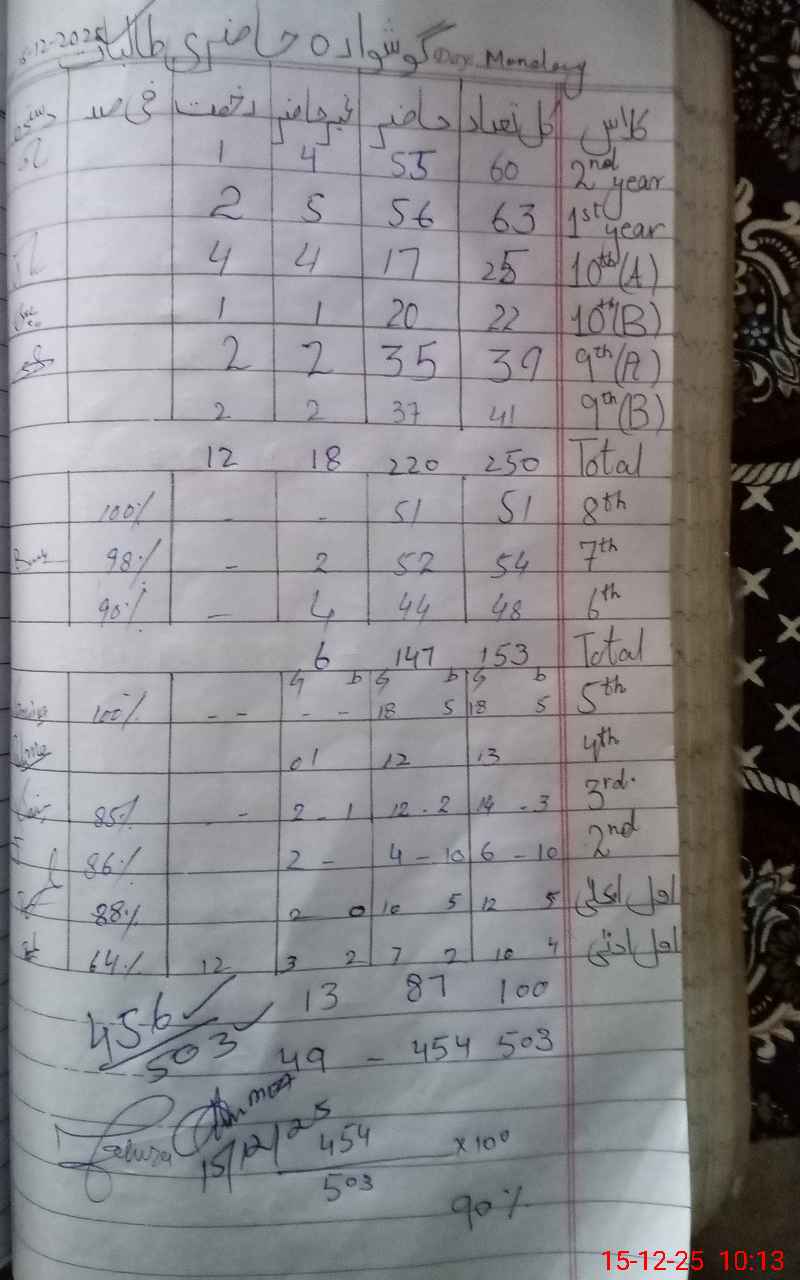 15-12-2025 گوشوارہ حاضری طالبات Day Monday
کلاس کل تعداد حاضر غیر حاضر رخصت فی صد دستخط
2nd year 60 55 4 1
1st year 63 56 5 2
10th(A) 25 17 4 4
10th(B) 22 20 1 1
9th(A) 39 35 2 2
9th(B) 41 37 2 2
Total 250 220 18 12
8th 51 51 - - 100%
7th 54 52 2 - 98%
6th 48 44 4 - 90%
Total 153 147 6
G b G b G b
5th 18 5 18 5 - - - - 100%
4th 13 12 01
3rd. 14 - 3 12 - 2 2 - 1 - - 85%
2nd 6 - 10 4 - 10 2 - 86%
اول اعلیٰ 12 5 10 5 2 0 88%
اول ادنیٰ 10 4 7 2 3 2 12 64%
100 87 13
456
503
503 454 - 49
15/12/25
454 × 100
503
90%
15-12-25 10:13